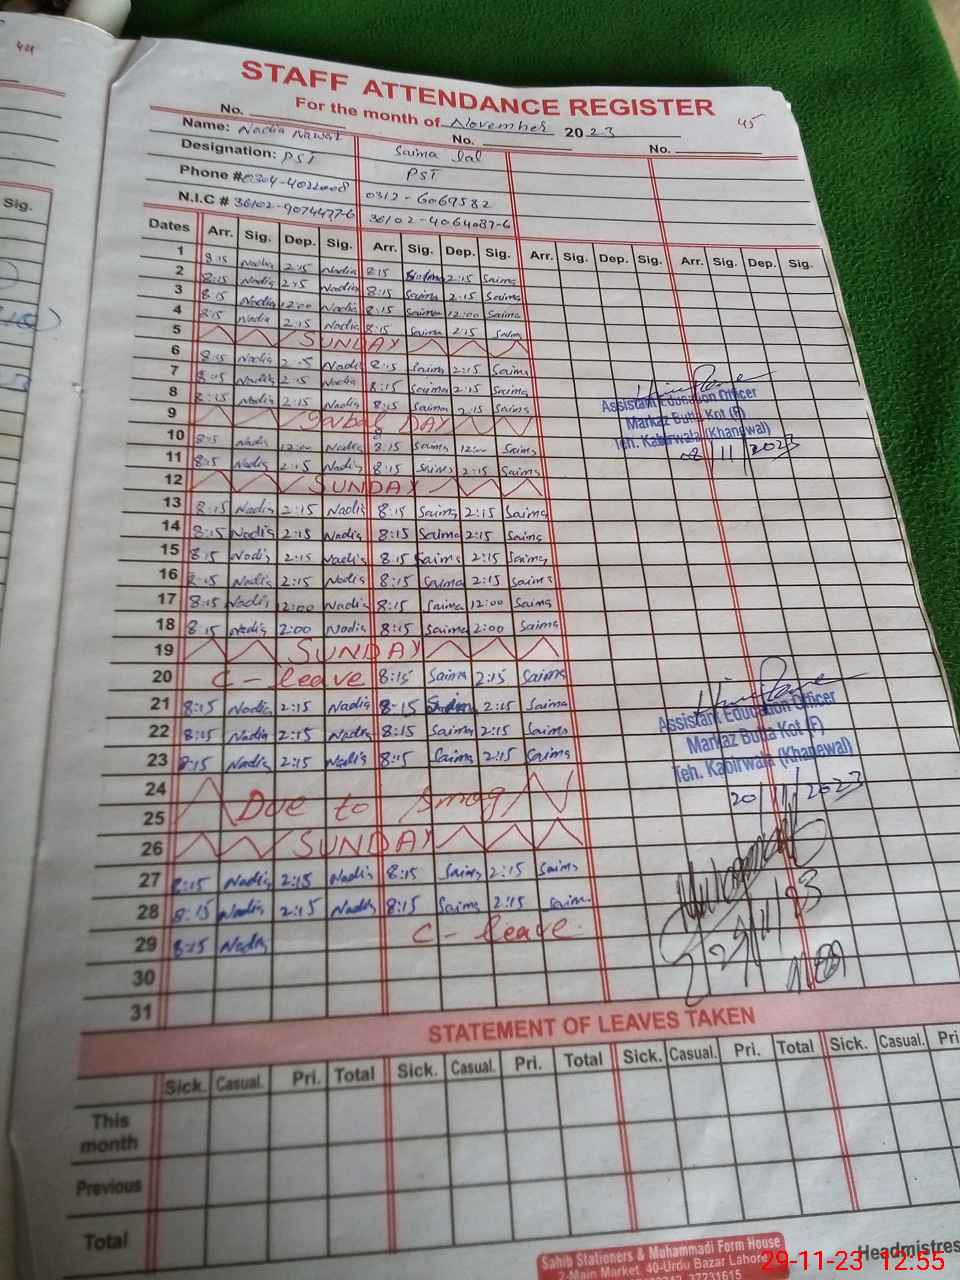 44
STAFF ATTENDANCE REGISTER
For the month of November 2023 45
No. No. No.
Name: Nadia Nawaz Saima lal
Designation: PST PST
Phone # 0304-4022008 0312-6069582
N.I.C # 36102-9074477-6 36102-4064087-6
Sig.
Dates Arr. Sig. Dep. Sig. Arr. Sig. Dep. Sig. Arr. Sig. Dep. Sig. Arr. Sig. Dep. Sig.
1 8:15 Nadia 2:15 Nadia 8:15 Saima 2:15 Saima
2 8:15 Nadia 2:15 Nadia 8:15 Saima 2:15 Saima
3 8:15 Nadia 12:00 Nadia 8:15 Saima 12:00 Saima
4 8:15 Nadia 2:15 Nadia 8:15 Saima 2:15 Saima
5 SUNDAY
6 8:15 Nadia 2:15 Nadia 8:15 Saima 2:15 Saima
7 8:15 Nadia 2:15 Nadia 8:15 Saima 2:15 Saima
8 8:15 Nadia 2:15 Nadia 8:15 Saima 2:15 Saima
Assistant Education Officer
Markaz Butta Kot (F)
Teh. Kabirwala (Khanewal)
08/11/2023
9 DAY
10 8:15 Nadia 12:00 Nadia 8:15 Saima 12:00 Saima
11 8:15 Nadia 2:15 Nadia 8:15 Saima 2:15 Saima
12 SUNDAY
13 8:15 Nadia 2:15 Nadia 8:15 Saima 2:15 Saima
14 8:15 Nadia 2:15 Nadia 8:15 Saima 2:15 Saima
15 8:15 Nadia 2:15 Nadia 8:15 Saima 2:15 Saima
16 8:15 Nadia 2:15 Nadia 8:15 Saima 2:15 Saima
17 8:15 Nadia 12:00 Nadia 8:15 Saima 12:00 Saima
18 8:15 Nadia 2:00 Nadia 8:15 Saima 2:00 Saima
19 SUNDAY
20 C-leave 8:15 Saima 2:15 Saima
21 8:15 Nadia 2:15 Nadia 8:15 Saima 2:15 Saima
22 8:15 Nadia 2:15 Nadia 8:15 Saima 2:15 Saima
23 8:15 Nadia 2:15 Nadia 8:15 Saima 2:15 Saima
Assistant Education Officer
Markaz Butta Kot (F)
Teh. Kabirwala (Khanewal)
20/11/2023
24
25 Due to smog
26 SUNDAY
27 8:15 Nadia 2:15 Nadia 8:15 Saima 2:15 Saima
28 8:15 Nadia 2:15 Nadia 8:15 Saima 2:15 Saima
29 8:15 Nadia C-leave
29/11/23
30
31
STATEMENT OF LEAVES TAKEN
Sick. Casual. Pri. Total Sick. Casual. Pri. Total Sick. Casual. Pri. Total Sick. Casual. Pri
This month
Previous
Total
Headmistres
Sahib Stationers & Muhammadi Form House
2-Main Market, 40-Urdu Bazar Lahore
37231615
29-11-23 12:55